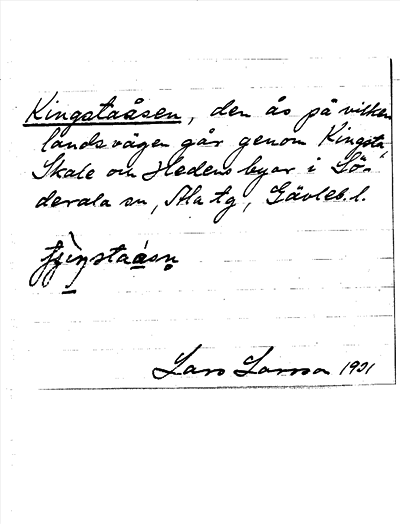 Kingstaåsen, den ås på vilken
landsvägen går genom Kingsta,
Skale och Hedens byar i Sö-
derala sn, Ala tg, Gävleb. l.
Lars Larsson 1931